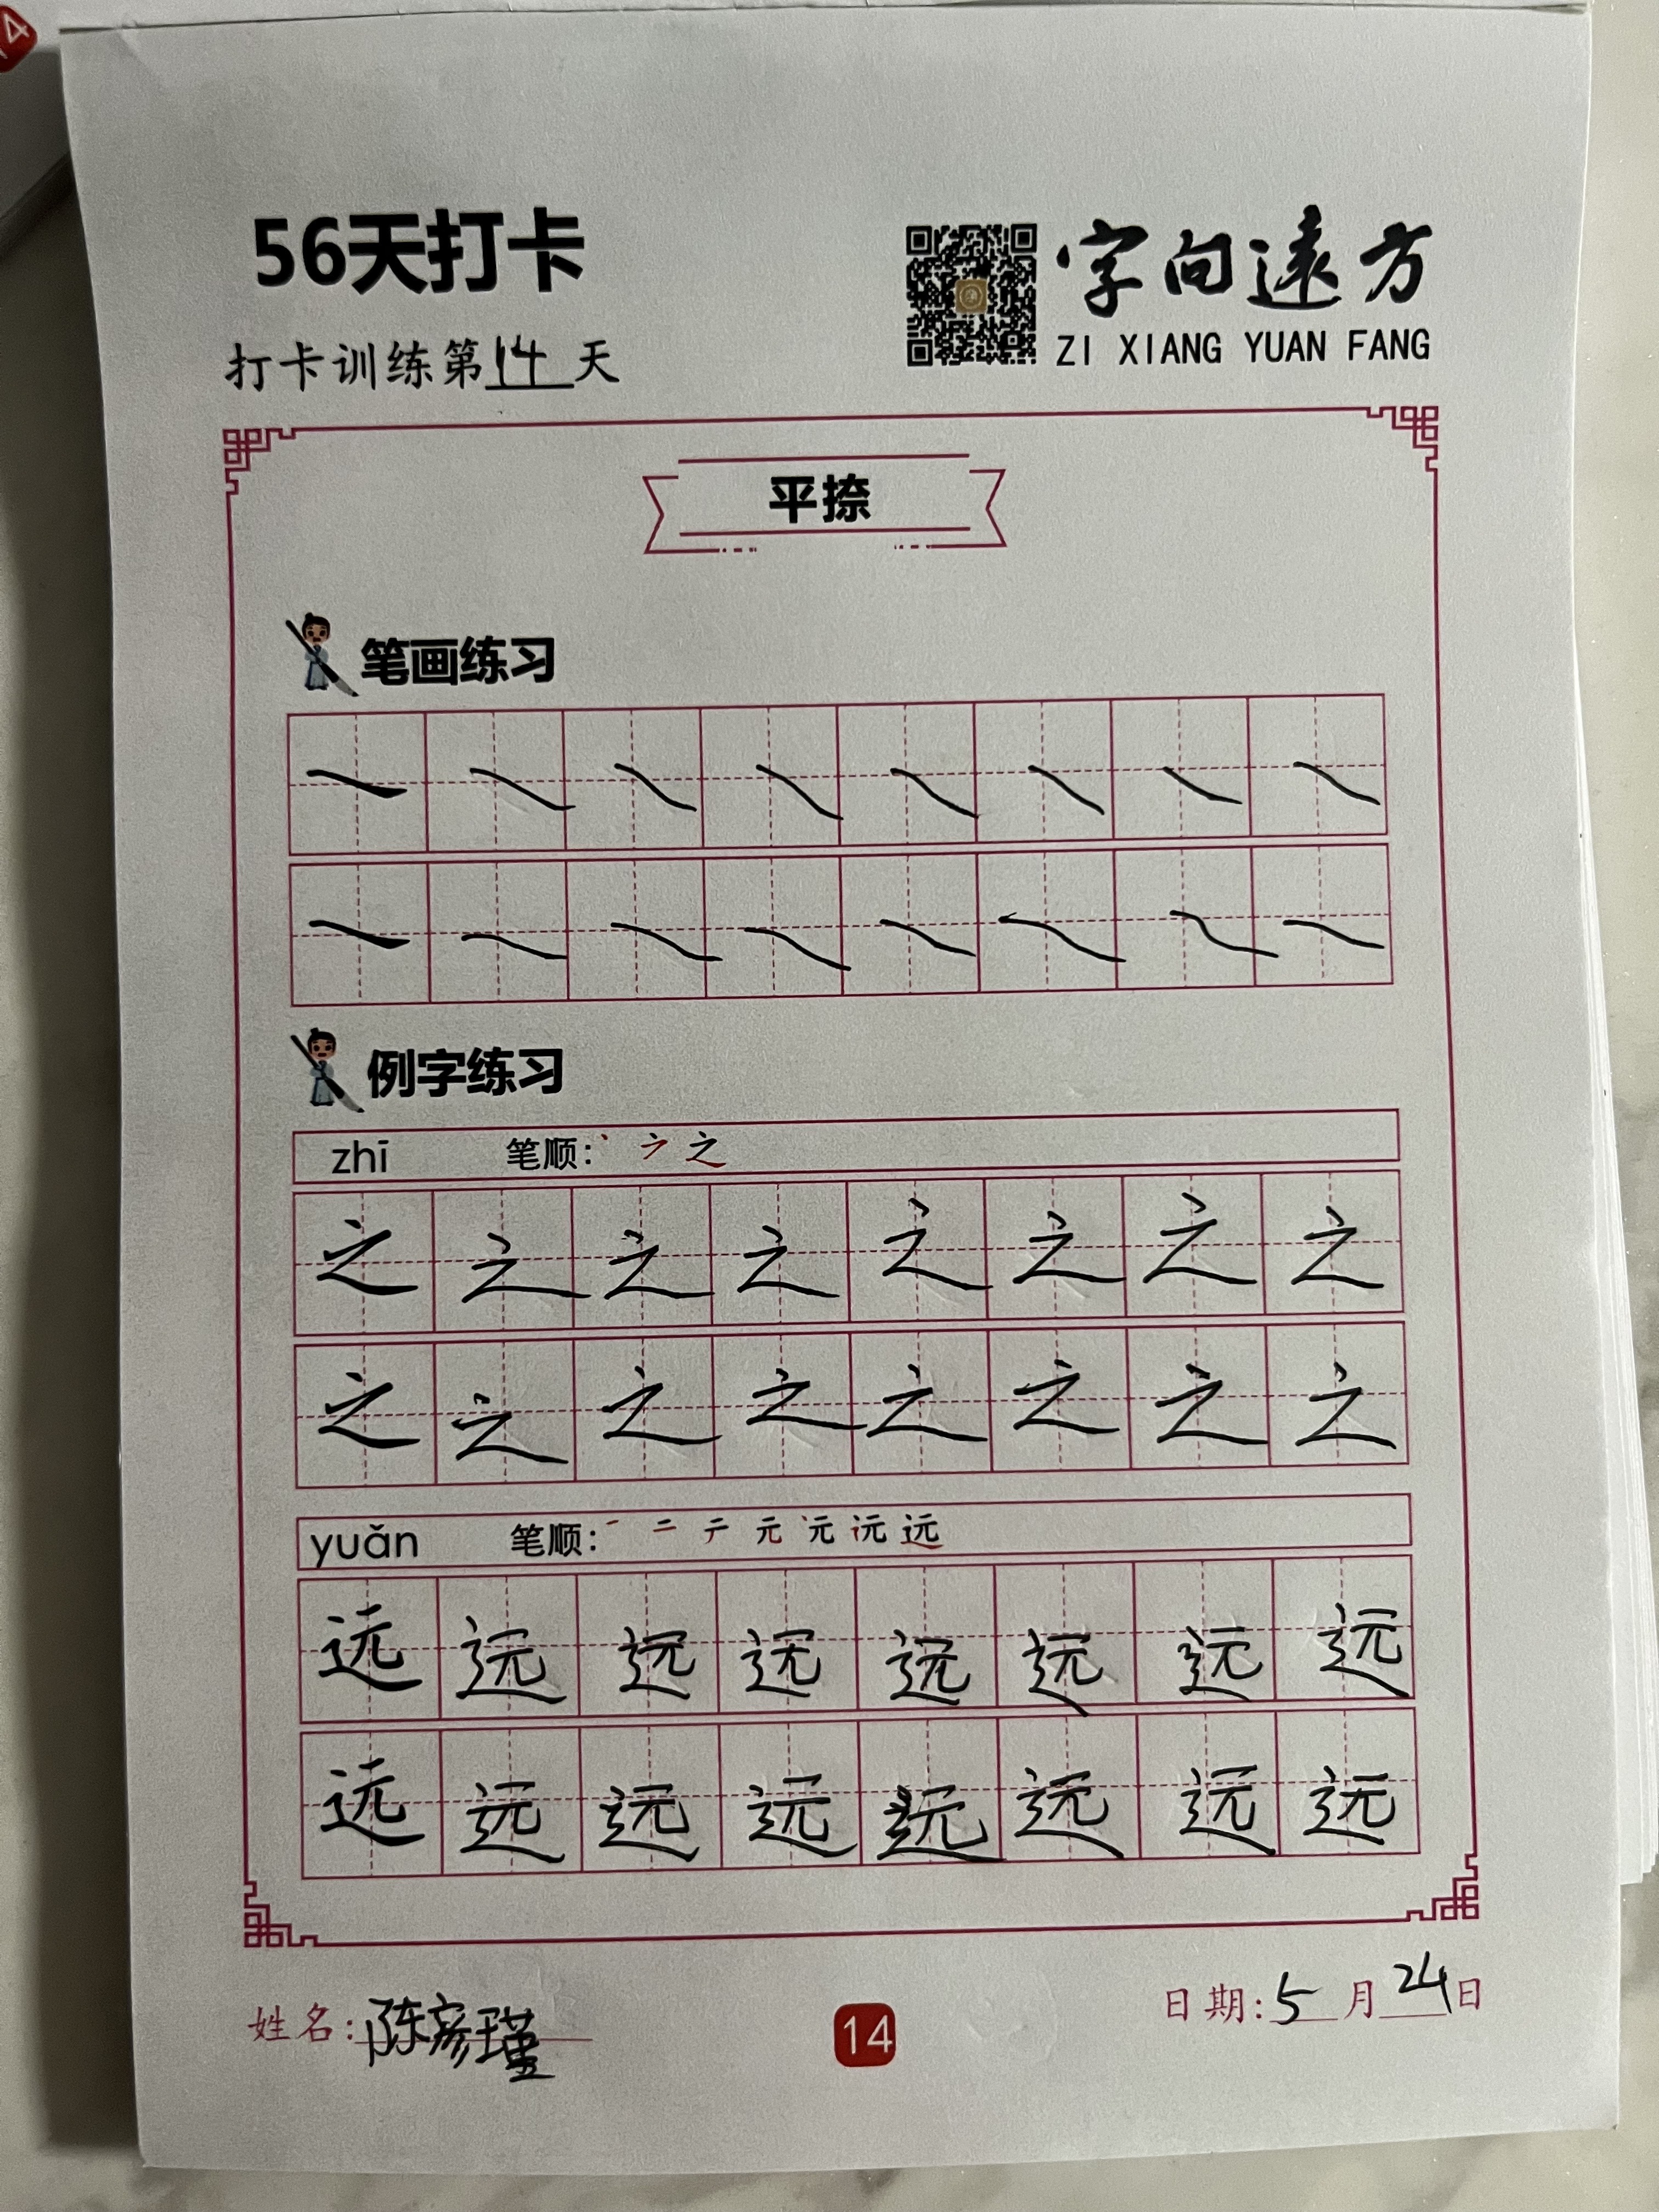 56天打卡
字向遠方
ZI XIANG YUAN FANG
打卡训练第14天
平捺
笔画练习
例字练习
zhī 笔顺: 丶 ㇇ 之
之 之 之 之 之 之 之 之
之 之 之 之 之 之 之 之
yuǎn 笔顺: 一 二 テ 元 远
远 远 远 远 远 远 远 远
远 远 远 远 远 远 远 远
姓名: 陈彦瑾
14
日期: 5月24日